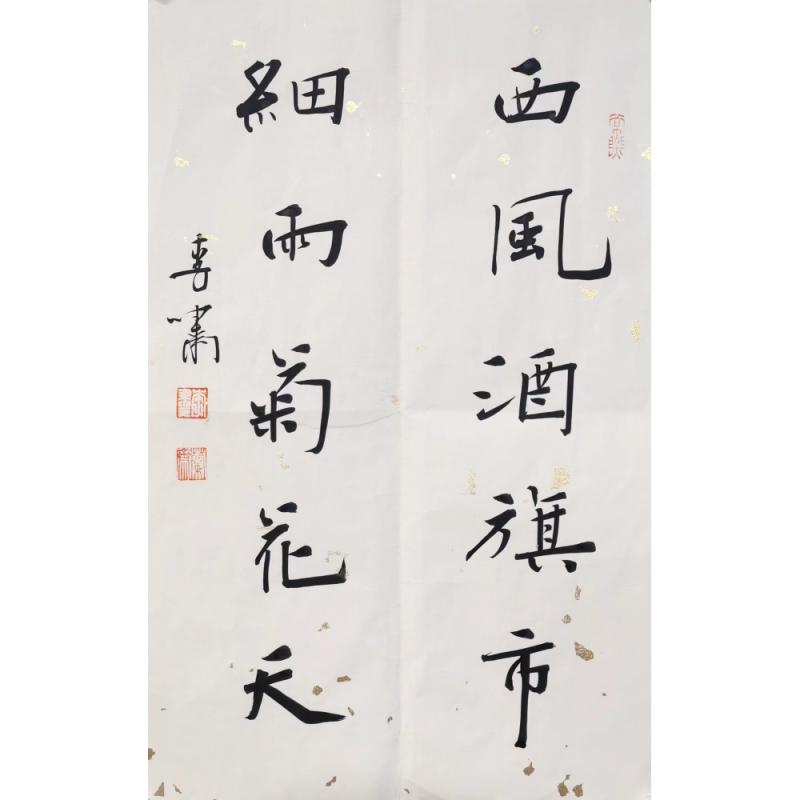 西風酒旗市
細雨菊花天